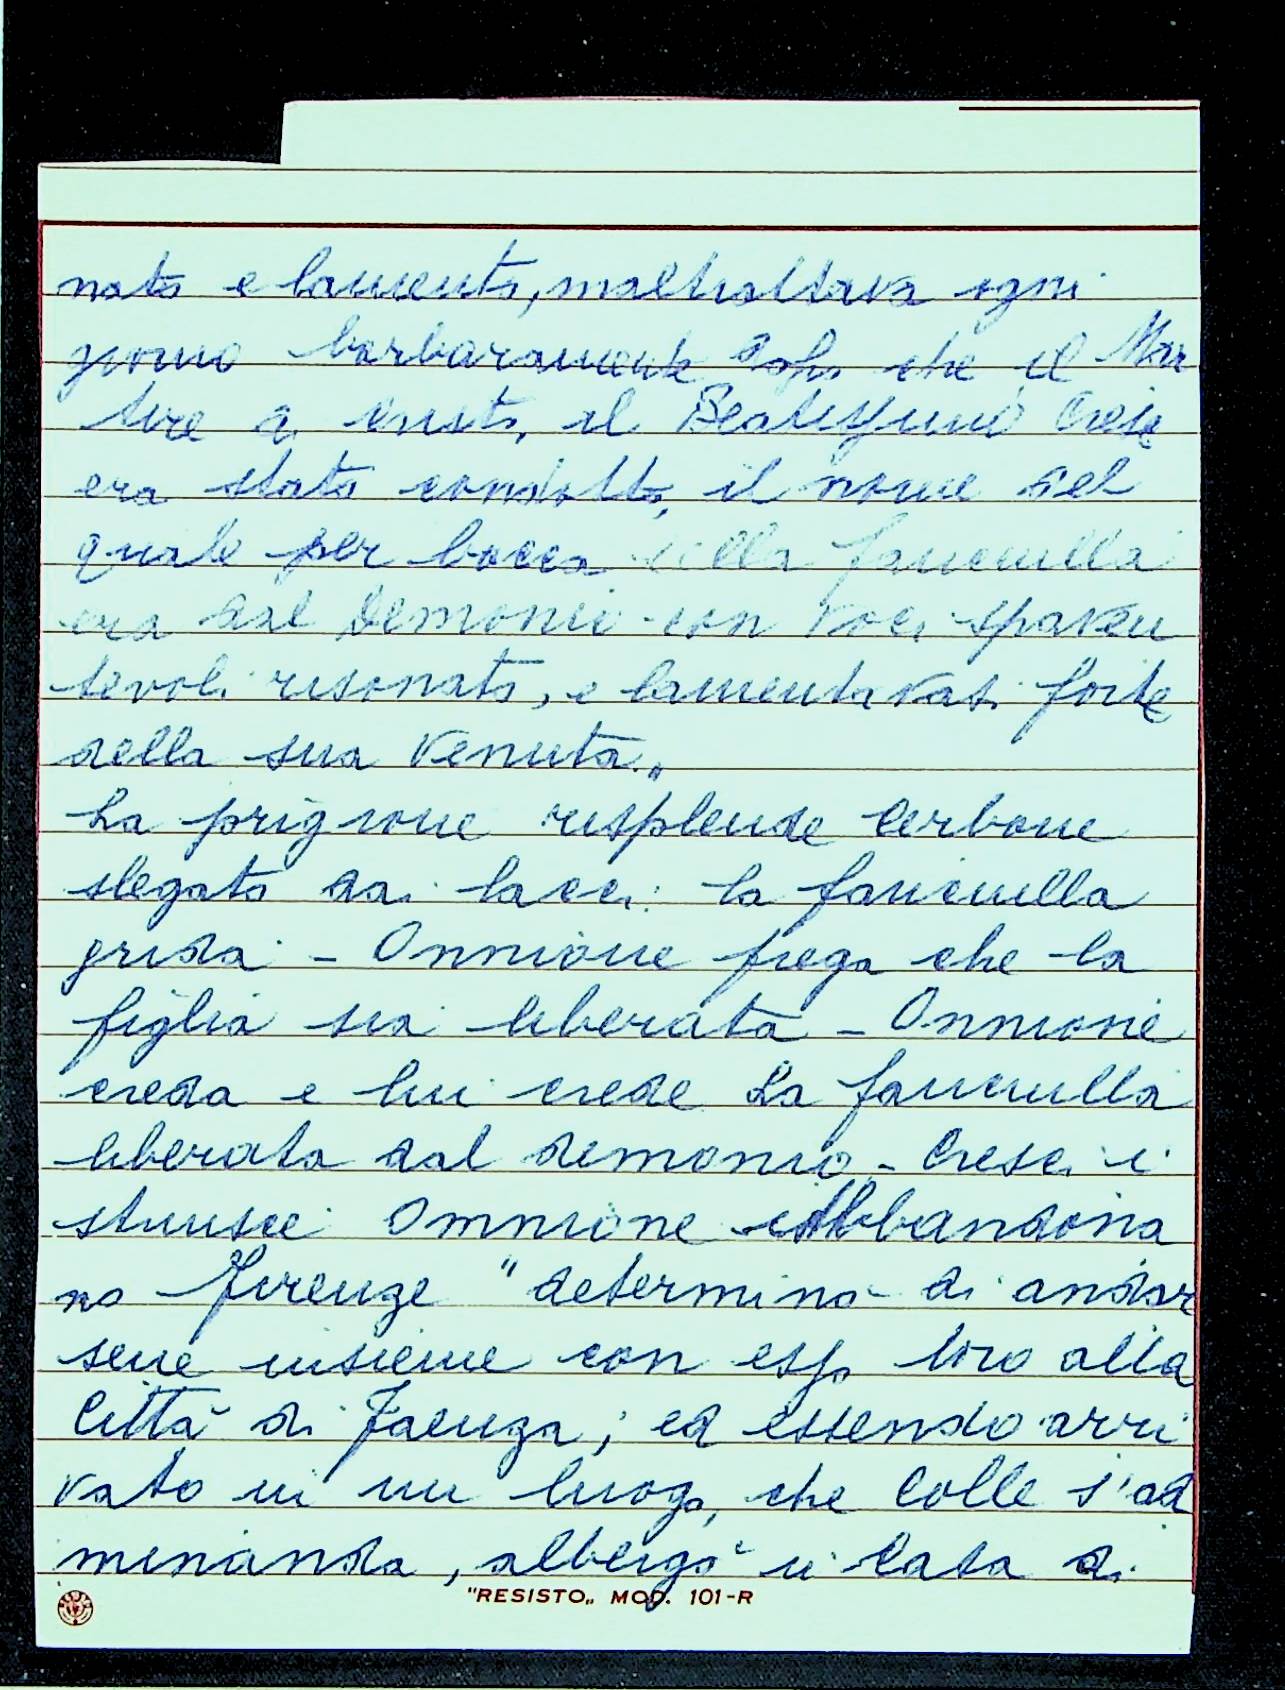 nato e lamento, maltrattava ogni
giorno barbaramente dopo che il Mar
tire di Cristo, il Beatissimo Cresci
era stato condotto, il nome del
quale per bocca della fanciulla
era dal Demonio con voci spaven
tevoli risonato, e lamentavasi forte
della sua venuta„
La prigione risplende Cerbone
slegato dai lacci: la fanciulla
grida - Omnione prega che la
figlia sia liberata - Omnione
creda e lui crede La fanciulla
liberata dal demonio - Cresci i
struisce Omnione Abbandona
no Firenze "determinò di andar
sene insieme con esso loro alla
Città di Faenza; ed essendo arri
vato in un luogo, che Colle s'ad
dimanda, albergò in casa di
"RESISTO„ MOD. 101-R